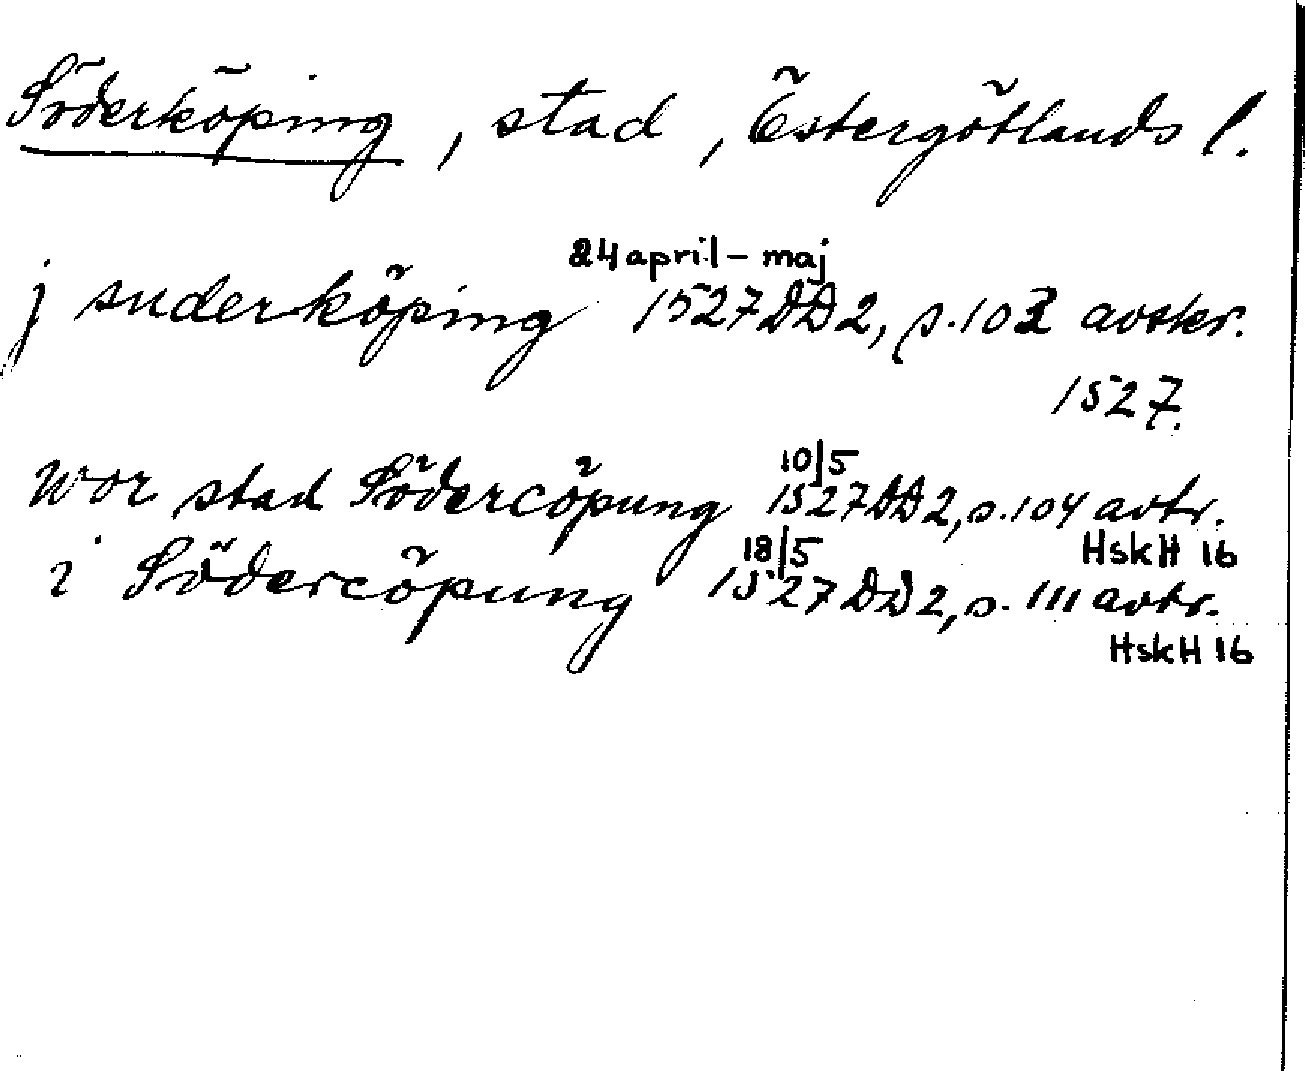 Söderköping, stad, Östergötlands l.
24 april – maj
j suderköping 1527 DD2, s. 102 avskr.
1527.
10/5
wor stad Södercöpung 1527 DD2, s. 104 avtr.
HskH 16
18/5
i Södercöpung 1527 DD2, s. 111 avtr.
HskH 16